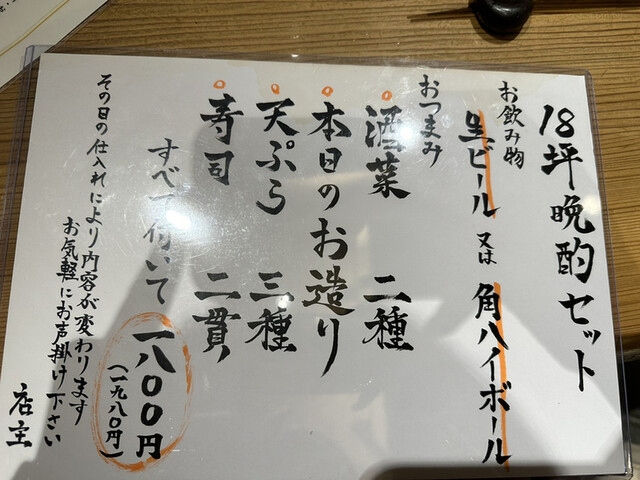 18坪晩酌セット
お飲み物
生ビール 又は 角ハイボール
おつまみ
酒菜 二種
本日のお造り
天ぷら 三種
寿司 二貫
すべて付いて 一八〇〇円
(一九八〇円)
その日の仕入れにより内容が変わります
お気軽にお声掛け下さい
店主